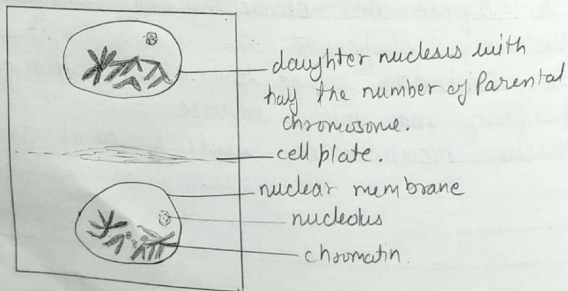 daughter nucleus with
half the number of Parental
chromosome.
cell plate.
nuclear membrane
nucleolus
chromatin.